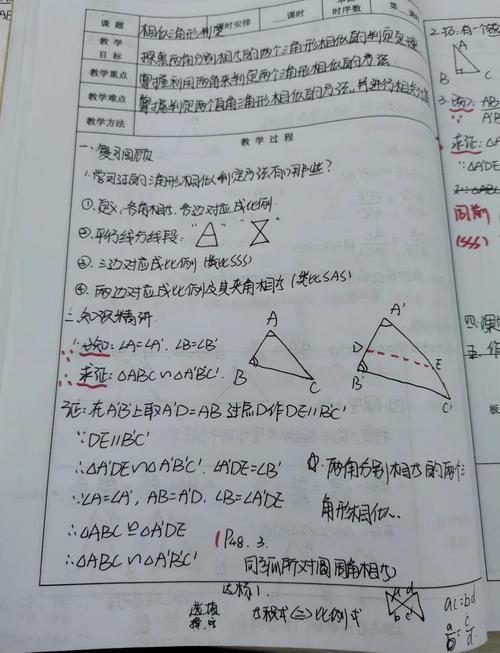 课题 相似三角形判定 课时安排 ___课时
教学目标 探索两角分别相等的两个三角形相似的判定定理
教学重点 掌握利用两角来判定两个三角形相似的方法
教学难点 掌握判定两个直角三角形相似的方法,并进行相关
教学方法
教学过程
一、复习回顾
1.学习过的三角形相似判定方法有哪些?
①.定义:各角相等,各边对应成比例.
②.平行线分线段:
③.三边对应成比例(类比SSS)
④.两边对应成比例及其夹角相等(类比SAS)
二、知识精讲
已知:∠A=∠A′,∠B=∠B′
求证:△ABC∽△A′B′C′
A
B
C
A′
D
E
B′
C′
证:在A′B′上取A′D=AB 过点D作DE∥B′C′
∵DE∥B′C′
∴△A′DE∽△A′B′C′,∠A′DE=∠B′
∵∠A=∠A′,AB=A′D,∠B=∠A′DE
∴△ABC≌△A′DE
∴△ABC∽△A′B′C′
①.两角分别相等的两个
三角形相似.
P48.3.
同弧所对圆周角相等
达标1.
选填
等积式⇔比例式
a d
b c
ac=bd
a/b=c/d
A
B
C
AB
求证:△
∵△A′DE
同前
(SSS)
四、课
五、作
板